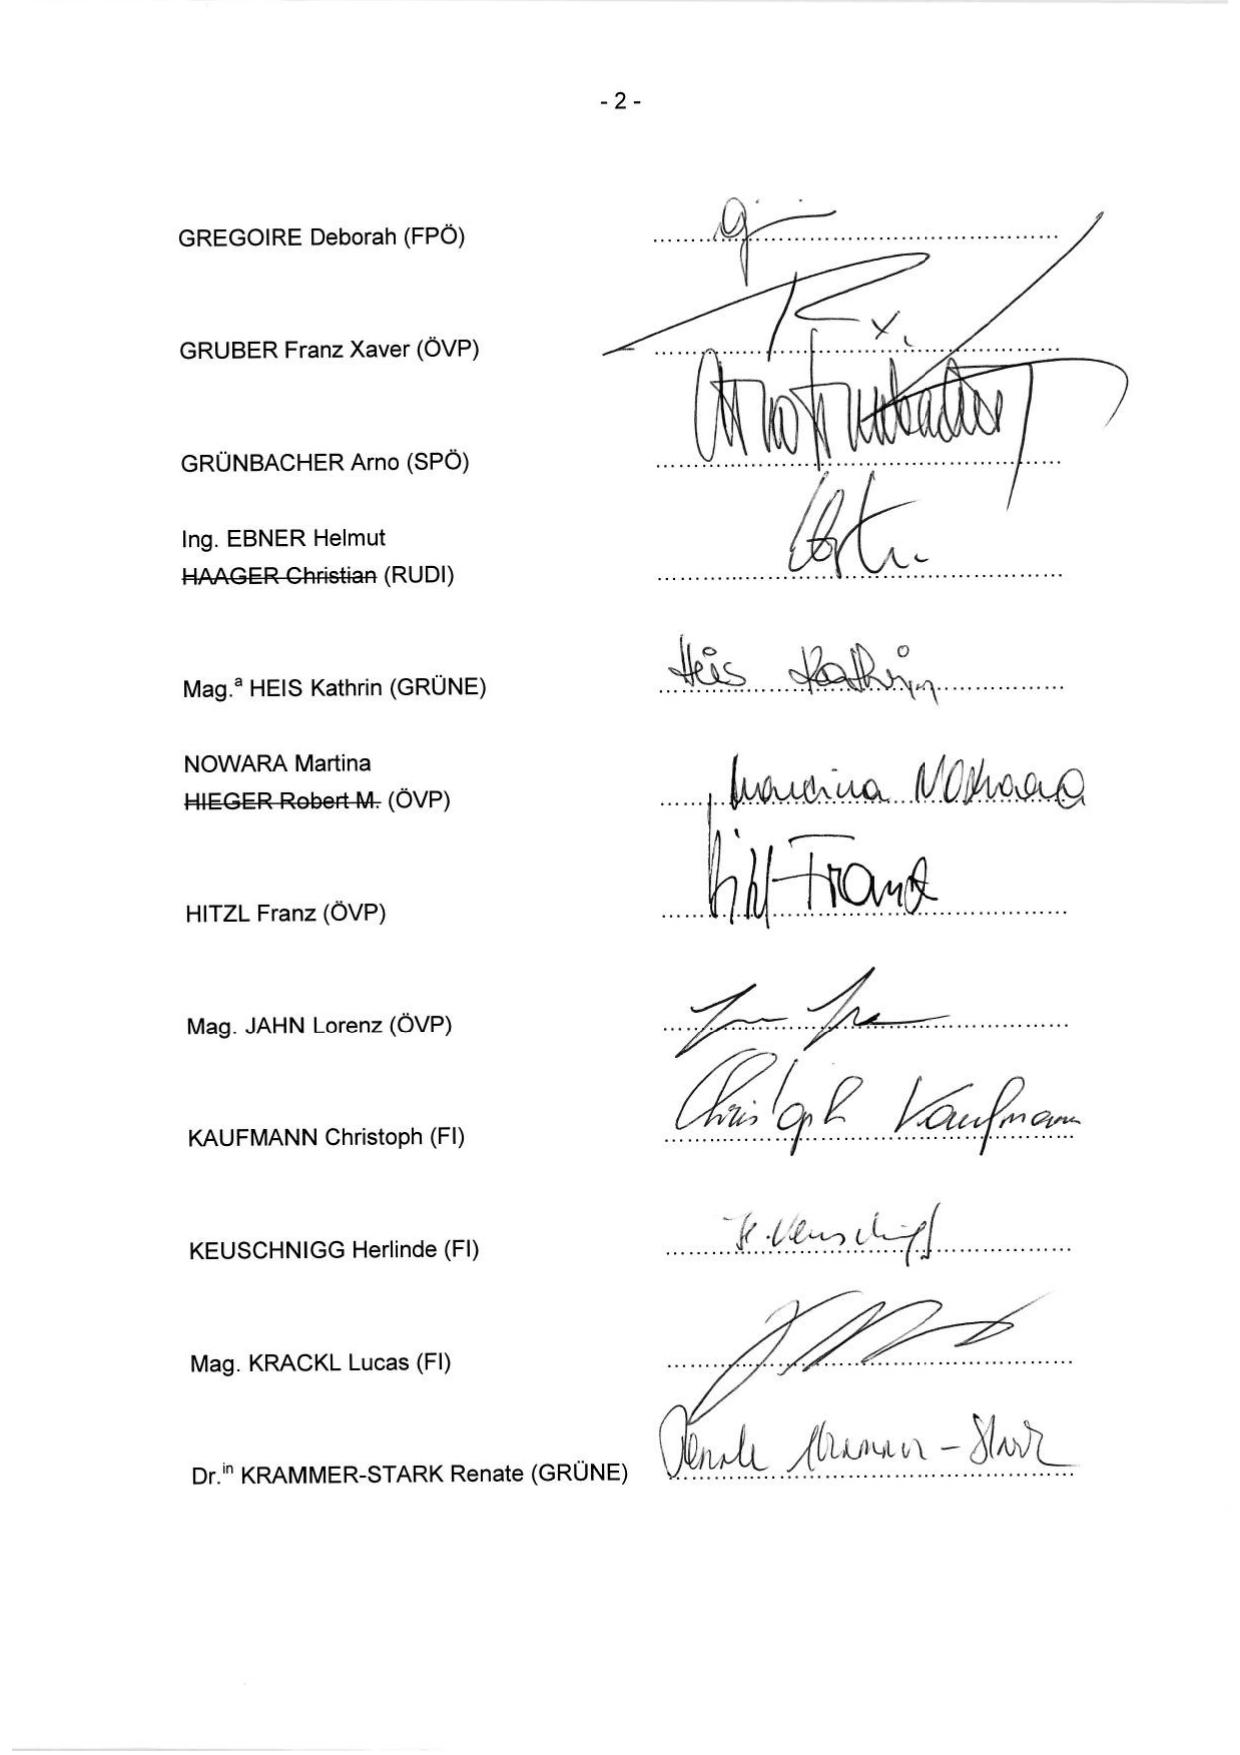 - 2 -
GREGOIRE Deborah (FPÖ)
GRUBER Franz Xaver (ÖVP)
GRÜNBACHER Arno (SPÖ)
Arno Grünbacher
Ing. EBNER Helmut
HAAGER Christian (RUDI)
Mag.ª HEIS Kathrin (GRÜNE)
Heis Kathrin
NOWARA Martina
HIEGER Robert M. (ÖVP)
Martina Nowara
HITZL Franz (ÖVP)
Hitzl Franz
Mag. JAHN Lorenz (ÖVP)
KAUFMANN Christoph (FI)
Christoph Kaufmann
KEUSCHNIGG Herlinde (FI)
H. Keuschnigg
Mag. KRACKL Lucas (FI)
Dr.in KRAMMER-STARK Renate (GRÜNE)
Renate Krammer-Stark